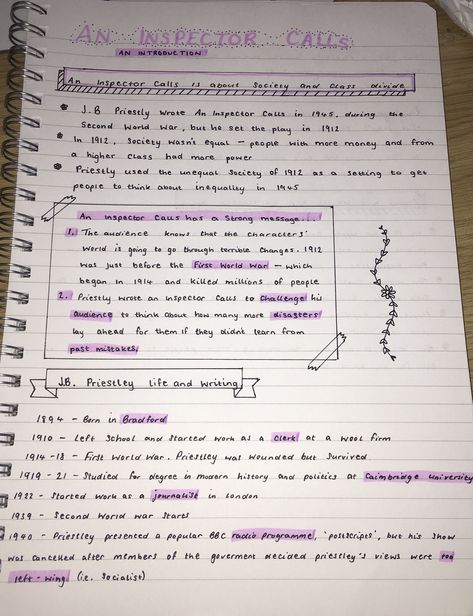 AN INSPECTOR CALLS
AN INTRODUCTION
An Inspector Calls is about Society and Class divide
J.B Priestly wrote An Inspector Calls in 1945, during the
Second World War, but he set the play in 1912
In 1912, society wasn't equal - people with more money and from
a higher class had more power
Priestly used the unequal society of 1912 as a setting to get
people to think about inequality in 1945
An Inspector Calls has a strong message....
1. The audience knows that the characters'
world is going to go through terrible changes. 1912
was just before the First World War - which
began in 1914 and killed millions of people
2. Priestly wrote an Inspector Calls to challenge his
audience to think about how many more disasters
lay ahead for them if they didn't learn from
past mistakes.
J.B. Priestley life and writing
1894 - Born in Bradford
1910 - Left School and started work as a Clerk at a wool firm
1914-18 - First World War. Priestley was wounded but survived
1919-21 - Studied for degree in modern history and politics at Caimbridge university
1922 - Started work as a journalist in London
1939 - Second World war starts
1940 - Priestley presented a popular BBC radio programme, 'postscripts', but his show
was cancelled after members of the goverment decided priestley's views were too
left-wing (i.e. socialist)